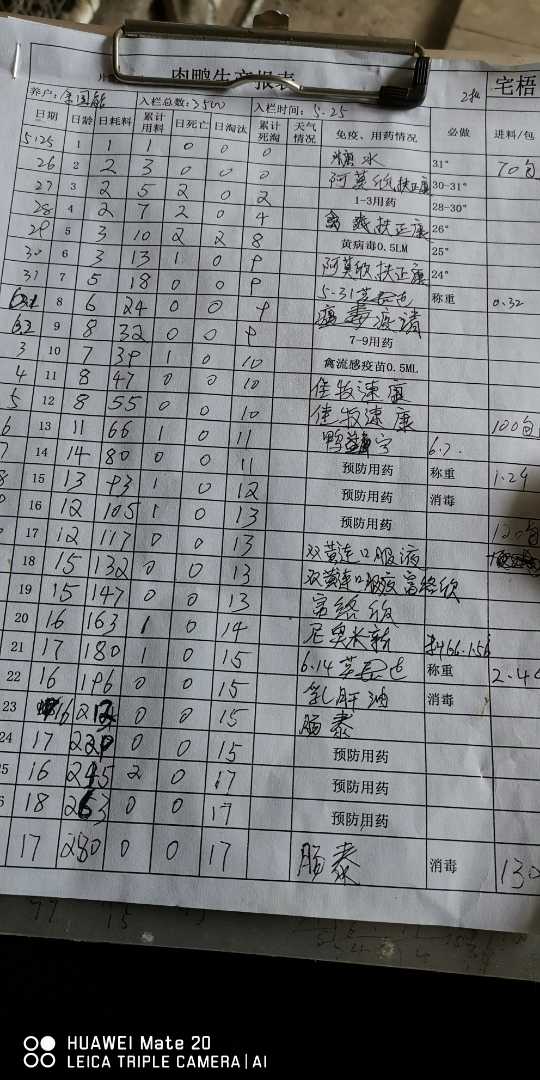 肉鸭生产报表
养户: 入栏总数:2500 入栏时间: 5.25 宅梧
日期 日龄 日耗料 累计用料 日死亡 日淘汰 累计死淘 天气情况 免疫、用药情况 必做 进料/包
5.25 1 1 1 0 0 0 糖水 31° 70包
26 2 2 3 0 0 0 阿莫欣扶正康 30-31°
27 3 2 5 2 0 2 1-3用药 28-30°
28 4 2 7 2 0 4 扶正康 26°
29 5 3 10 2 2 8 黄病毒0.5LM 25°
30 6 3 13 1 0 9 阿莫欣扶正康 24°
31 7 5 18 0 0 9 5.31 称重 0.32
8 6 24 0 0 9 病毒
6.2 9 8 32 0 0 9 7-9用药
3 10 7 39 1 0 10 禽流感疫苗0.5ML
4 11 8 47 0 0 10 佳牧速康
5 12 8 55 0 0 10 佳牧速康 100包
6 13 11 66 1 0 11 6.7.
7 14 14 80 0 0 11 预防用药 称重 1.24
8 15 13 93 1 0 12 预防用药 消毒
16 12 105 1 0 13 预防用药 120包
17 12 117 0 0 13 双黄连口服液
18 15 132 0 0 13 双黄连口服液 富络欣
19 15 147 0 0 13 富络欣
20 16 163 1 0 14
21 17 180 1 0 15 6.14 称重 2.44
22 16 196 0 0 15 乳肝油 消毒
23 16 212 0 0 15 肠泰
24 17 229 0 0 15 预防用药
25 16 245 2 0 17 预防用药
18 263 0 0 17 预防用药
17 280 0 0 17 肠泰 消毒 130
HUAWEI Mate 20
LEICA TRIPLE CAMERA | AI